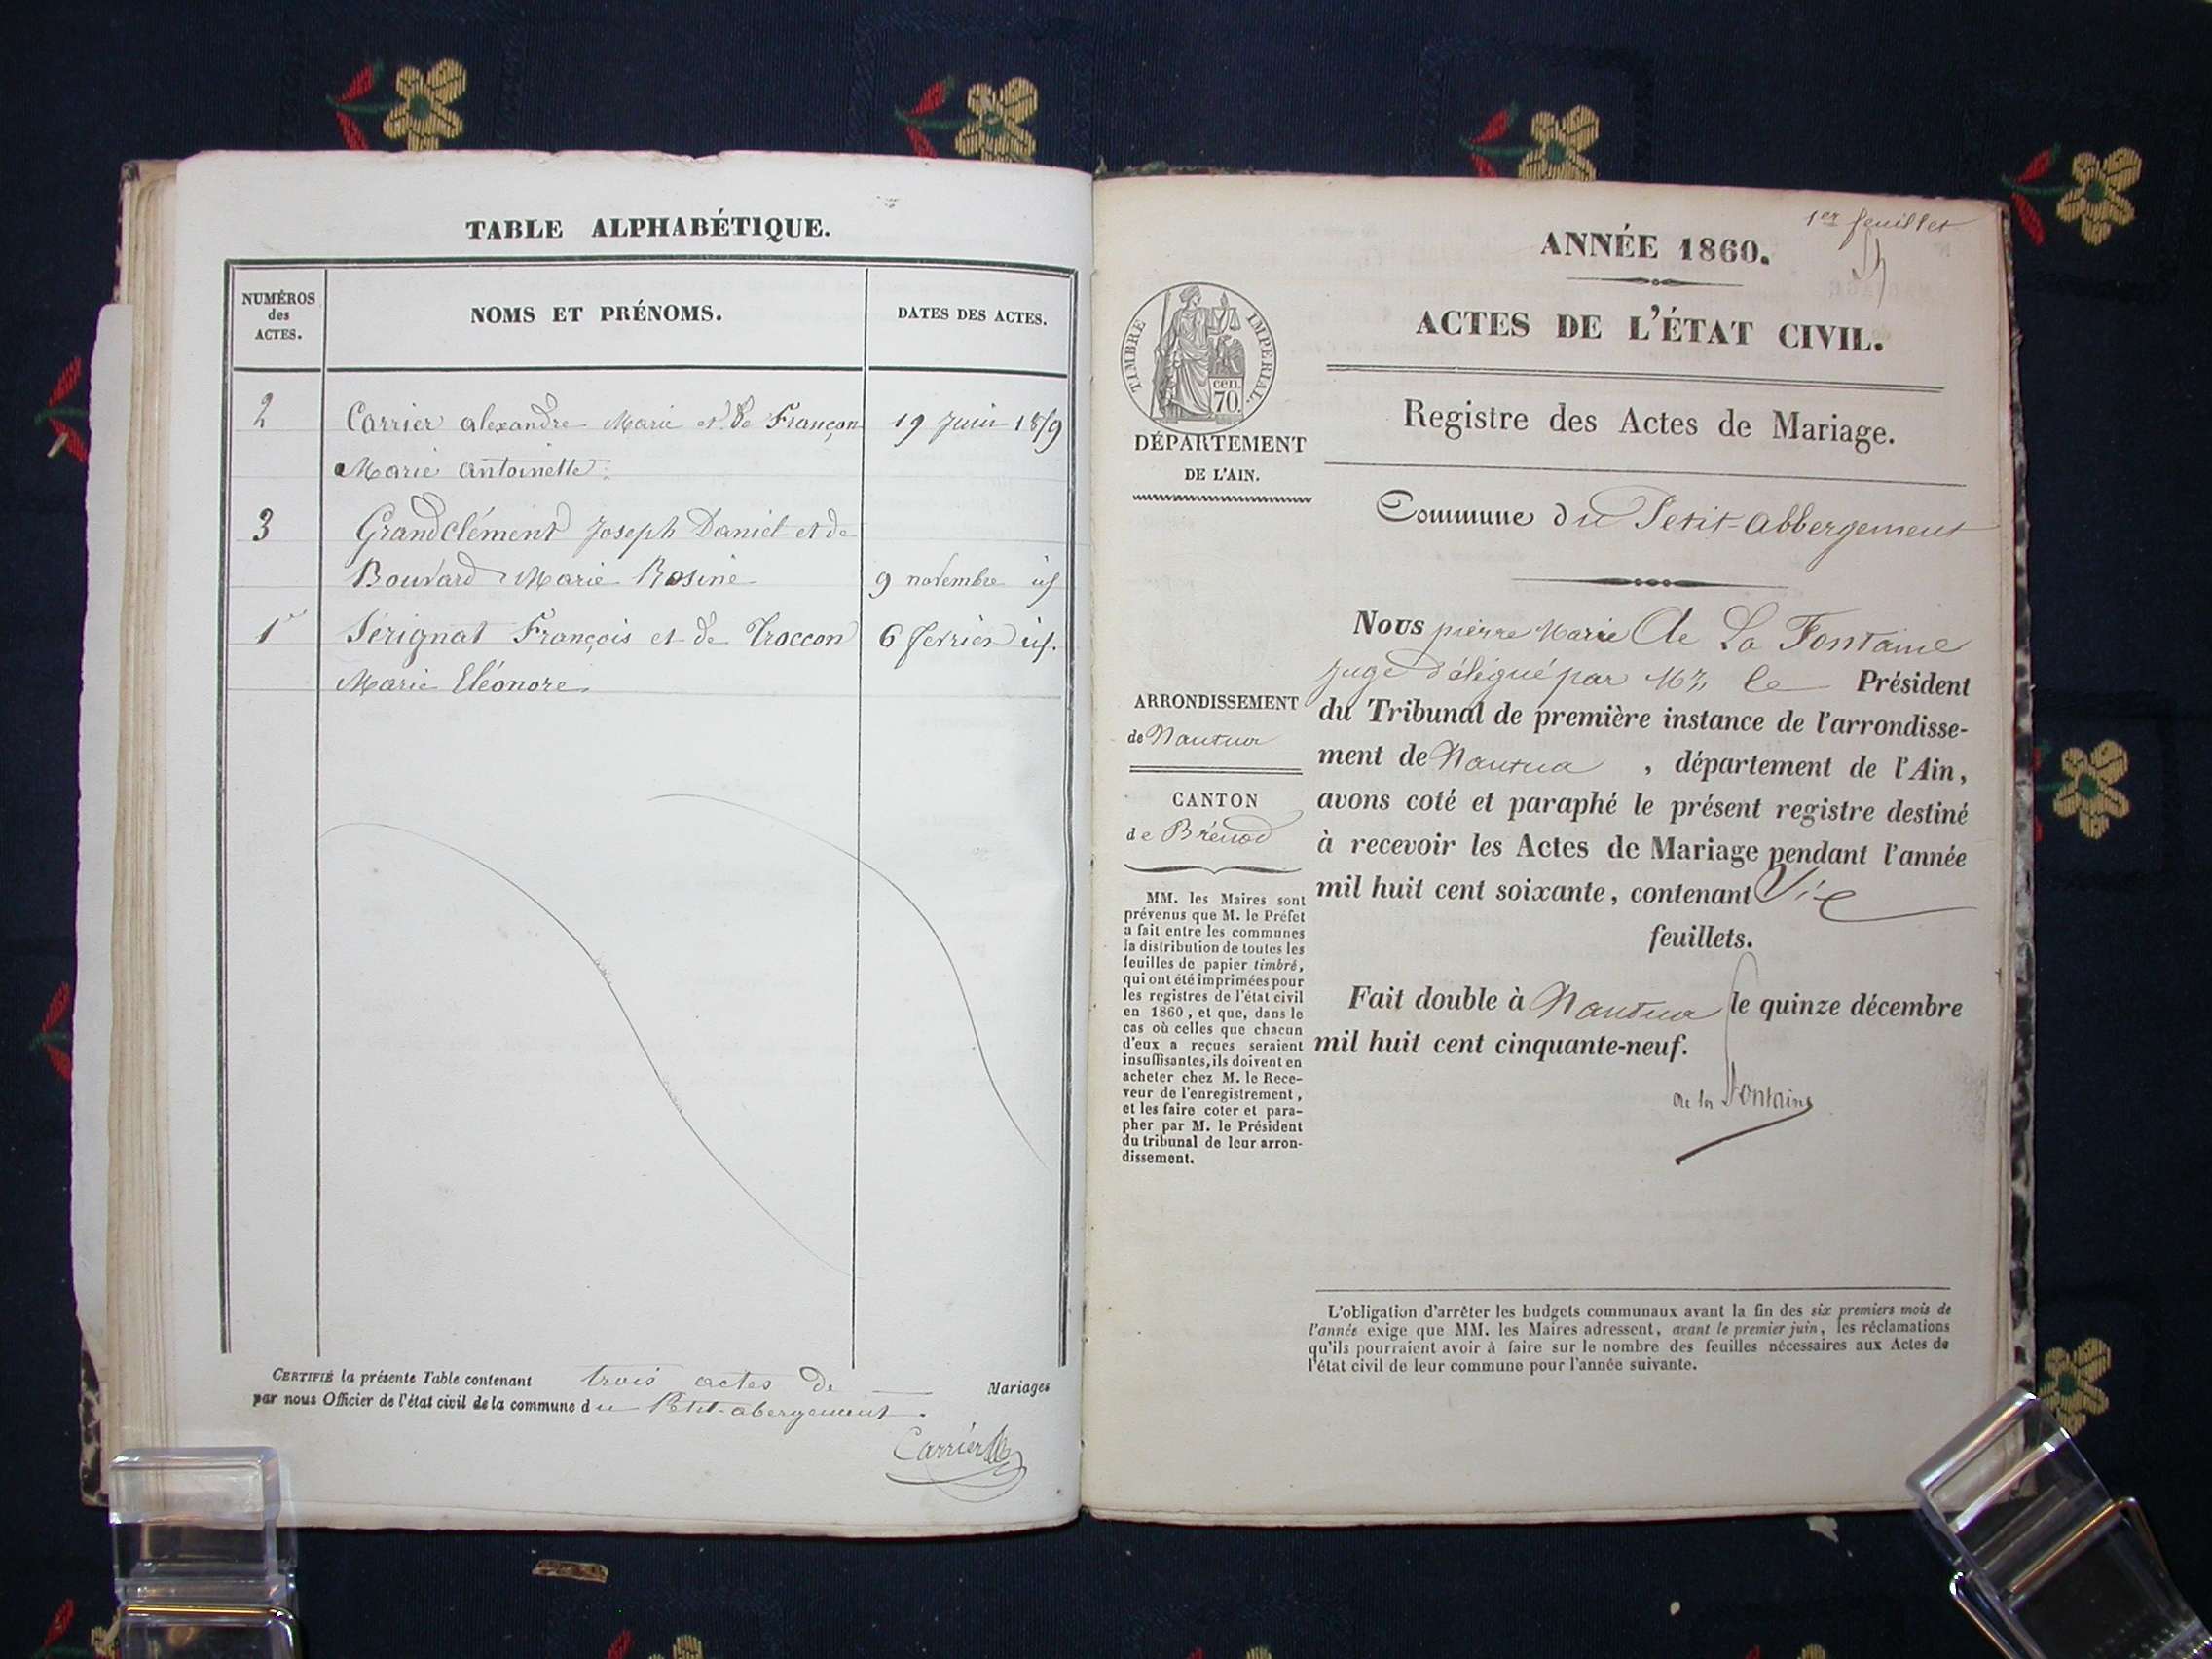 TABLE ALPHABÉTIQUE.
NUMÉROS
des
ACTES.
NOMS ET PRÉNOMS.
DATES DES ACTES.
2 Carrier alexandre Marie et de Françon 19 Juin 1859
Marie antoinette
3 Grandclément Joseph Daniel et de
Bouvard Marie Rosine 9 novembre id
1er Sérignat François et de Troccon 6 fevrier id.
Marie Eléonore
CERTIFIÉ la présente Table contenant trois actes de Mariages
par nous Officier de l'état civil de la commune du Petit-abergement.
Carrier
1er feuillet
ANNÉE 1860.
TIMBRE IMPERIAL.
cen.
70.
ACTES DE L'ÉTAT CIVIL.
Registre des Actes de Mariage.
DÉPARTEMENT
DE L'AIN.
Commune du Petit-abbergement
ARRONDISSEMENT
de Nantua
CANTON
de Brénod
MM. les Maires sont
prévenus que M. le Préfet
a fait entre les communes
la distribution de toutes les
feuilles de papier timbré,
qui ont été imprimées pour
les registres de l'état civil
en 1860, et que, dans le
cas où celles que chacun
d'eux a reçues seraient
insuffisantes, ils doivent en
acheter chez M. le Rece-
veur de l'enregistrement,
et les faire coter et para-
pher par M. le Président
du tribunal de leur arron-
dissement.
Nous pierre Marie De La Fontaine
juge délégué par Mr le Président
du Tribunal de première instance de l'arrondisse-
ment de Nantua , département de l'Ain,
avons coté et paraphé le présent registre destiné
à recevoir les Actes de Mariage pendant l'année
mil huit cent soixante, contenant
feuillets.
Fait double à Nantua le quinze décembre
mil huit cent cinquante-neuf.
de la Fontaine
L'obligation d'arrêter les budgets communaux avant la fin des six premiers mois de
l'année exige que MM. les Maires adressent, avant le premier juin, les réclamations
qu'ils pourraient avoir à faire sur le nombre des feuilles nécessaires aux Actes de
l'état civil de leur commune pour l'année suivante.